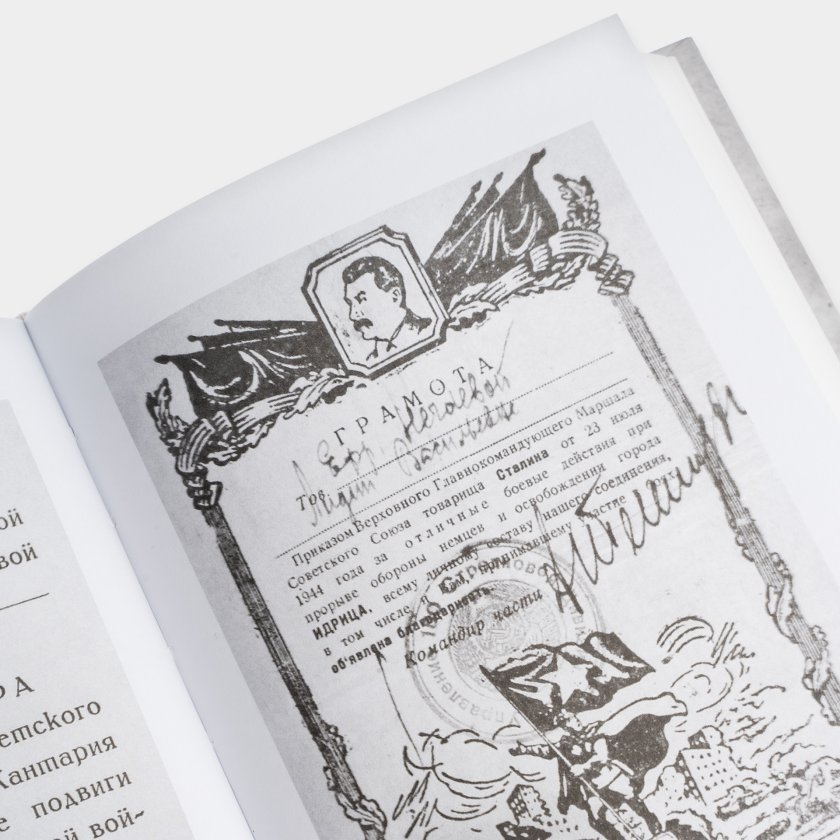 ой
вой
РА
етского
Кантария
е подвиги
ой вой-
ГРАМОТА
Ефр. Нечаевой
Тов.
Лидии Васильевне
Приказом Верховного Главнокомандующего Маршала
Советского Союза товарища Сталина от 23 июля
1944 года за отличные боевые действия при
прорыве обороны немцев и освобождении города
ИДРИЦА, всему личному составу нашего соединения,
в том числе и Вам, принимавшему участие
объявлена благодарность.
Командир части
Управление
Стрелково